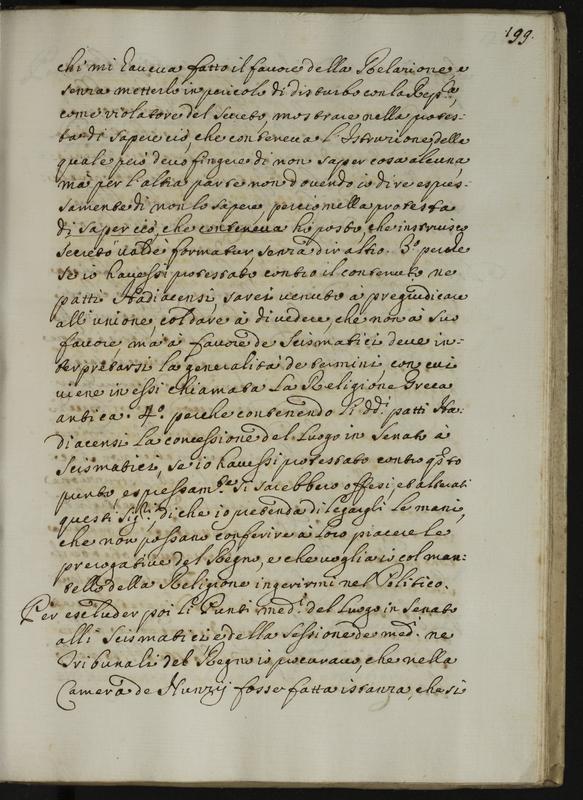 199.
chi mi haueua fatto il fauore della Relazione, e
senza metterlo in pericolo di disturbo con la Rep.ca,
come violatore del Secreto, mostrare nella protes-
ta di sapere ciò, che conteneua l'Istruzione della
quale però deuo fingere di non saper cosa alcuna
mà per l'altra parte non douendo io dire espres-
samente di non lo sapere, perciò nella protesta
di saper ciò, che conteneua hò posto, che instruisco
secreto ualde formatur senza dir altro. 3.o perche
se io hauessi protestato contro il contenuto ne
patti Hadiacensi, sarei uenuto à pregiudicare
all'unione col dare à diuedere, che non à suo
fauore, mà à fauore de Scismatici deue in-
terpretarsi la generalità de termini, con cui
uiene in essi chiamata la Religione Greca
antica. 4.o perche contenendo li dd.i patti Ha-
diacensi la concessione del luogo in Senato à
Scismatici, se io hauessi protestato contro q.sto
punto, espressam.te si sarebbero offesi, et alterati
questi Sig.ri, di che io pretenda di legargli le mani,
che non possano conferire à loro piacere le
prerogatiue del Regno, e che uoglia io col man-
tello della Religione ingerirmi nel Politico.
Per escluder poi li Punti med.i del luogo in Senato
alli Scismatici e della sessione de med.i ne
Tribunali del Regno io procurauo, che nella
Camera de Nunzij fosse fatta istanza, che si